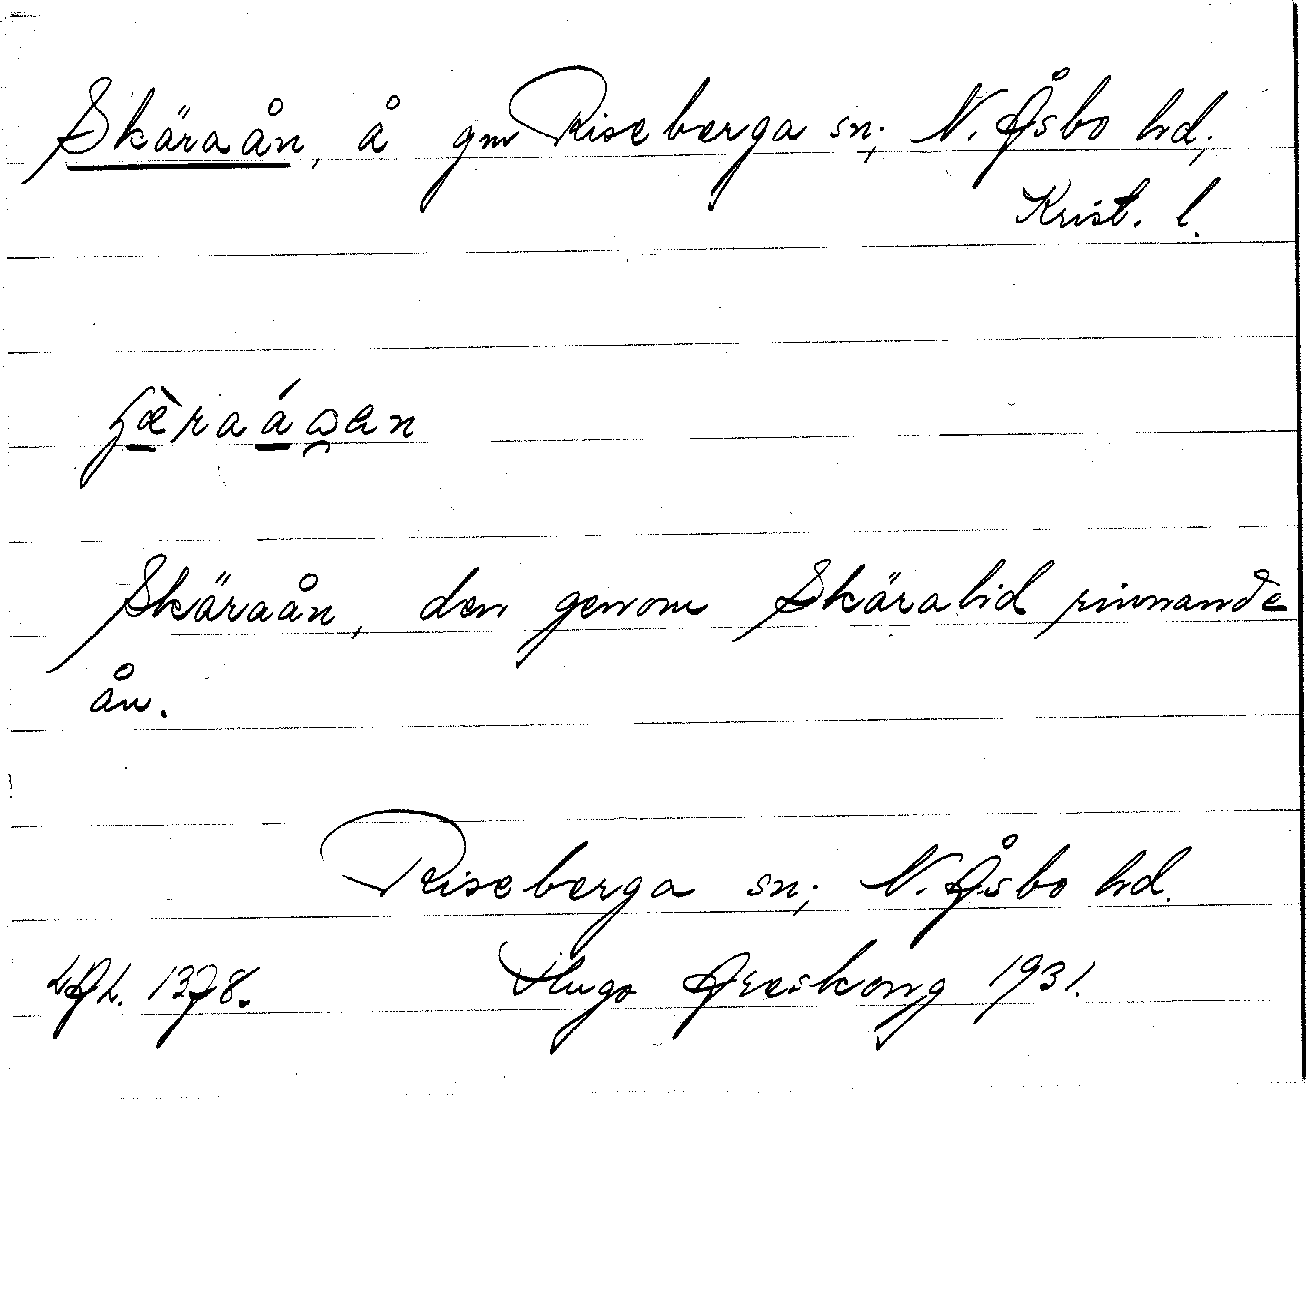 Skäraån, å gm Riseberga sn; N. Åsbo hd,
Krist. l.
Skäraån, den genom Skäralid rinnande
ån.
Riseberga sn; N. Åsbo hd.
1378. Hugo Areskoug 1931.